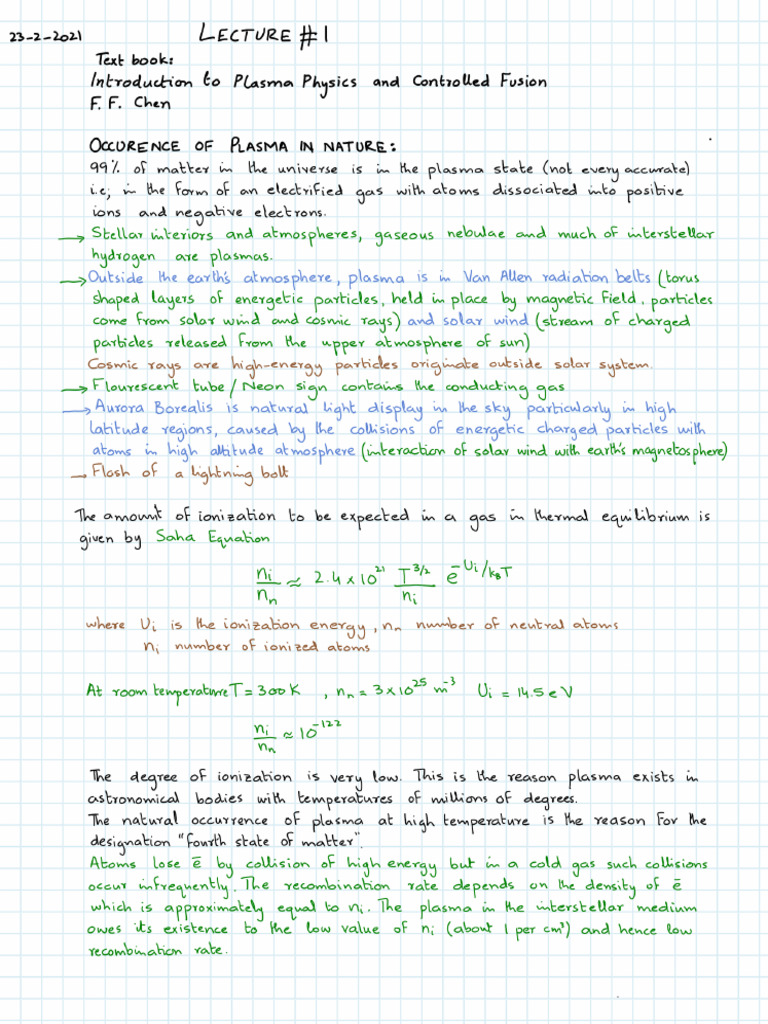 23-2-2021
LECTURE #1
Text book:
Introduction to Plasma Physics and Controlled Fusion
F. F. Chen
OCCURENCE OF PLASMA IN NATURE:
99% of matter in the universe is in the plasma state (not every accurate)
i.e; in the form of an electrified gas with atoms dissociated into positive
ions and negative electrons.
→ Stellar interiors and atmospheres, gaseous nebulae and much of interstellar
hydrogen are plasmas.
→ Outside the earth's atmosphere, plasma is in Van Allen radiation belts (torus
shaped layers of energetic particles, held in place by magnetic field, particles
come from solar wind and cosmic rays) and solar wind (stream of charged
particles released from the upper atmosphere of sun)
Cosmic rays are high-energy particles originate outside solar system.
→ Flourescent tube / Neon sign contains the conducting gas
→ Aurora Borealis is natural light display in the sky particularly in high
latitude regions, caused by the collisions of energetic charged particles with
atoms in high altitude atmosphere (interaction of solar wind with earth's magnetosphere)
→ Flash of a lightning bolt
The amount of ionization to be expected in a gas in thermal equilibrium is
given by Saha Equation
nᵢ/nₙ ≈ 2.4 × 10²¹ T^3/2/nᵢ e^-Uᵢ/k_BT
where Uᵢ is the ionization energy, nₙ number of neutral atoms
nᵢ number of ionized atoms
At room temperature T = 300 K , nₙ = 3 × 10²⁵ m⁻³ Uᵢ = 14.5 eV
nᵢ/nₙ ≈ 10⁻¹²²
The degree of ionization is very low. This is the reason plasma exists in
astronomical bodies with temperatures of millions of degrees.
The natural occurrence of plasma at high temperature is the reason for the
designation "fourth state of matter".
Atoms lose ē by collision of high energy but in a cold gas such collisions
occur infrequently. The recombination rate depends on the density of ē
which is approximately equal to nᵢ. The plasma in the interstellar medium
owes its existence to the low value of nᵢ (about 1 per cm³) and hence low
recombination rate.